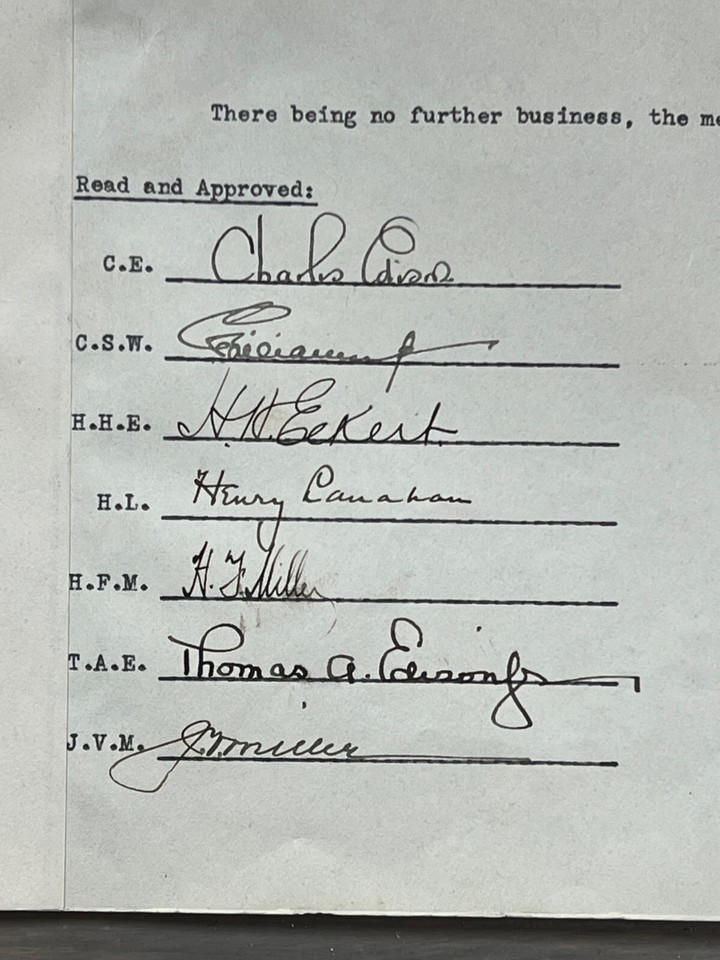 There being no further business, the me
Read and Approved:
C.E. Charles Edison
C.S.W.
H.H.E. H.H. Eckert
H.L. Henry Lanahan
H.F.M. H.F. Miller
T.A.E. Thomas A. Edison Jr
J.V.M. J.V. Miller